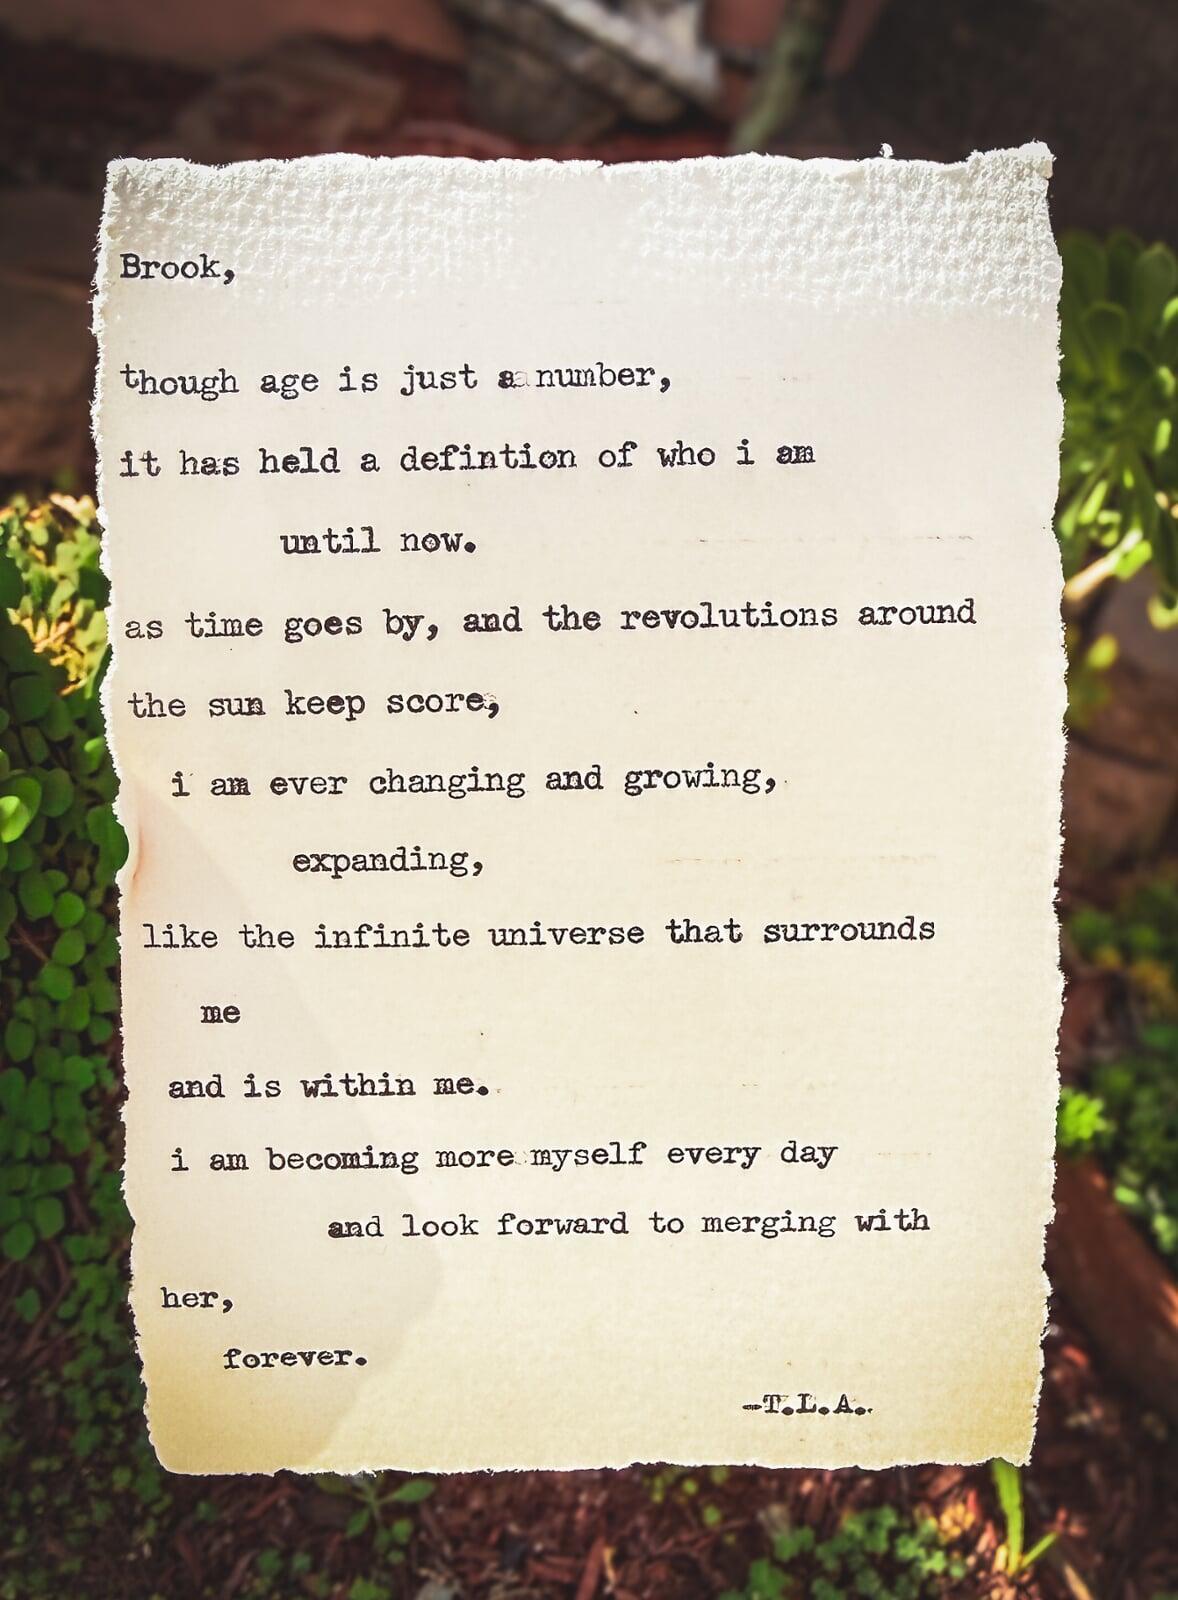 Brook,
though age is just a number,
it has held a defintion of who i am
until now.
as time goes by, and the revolutions around
the sun keep score,
i am ever changing and growing,
expanding,
like the infinite universe that surrounds
me
and is within me.
i am becoming more myself every day
and look forward to merging with
her,
forever.
-T.L.A.